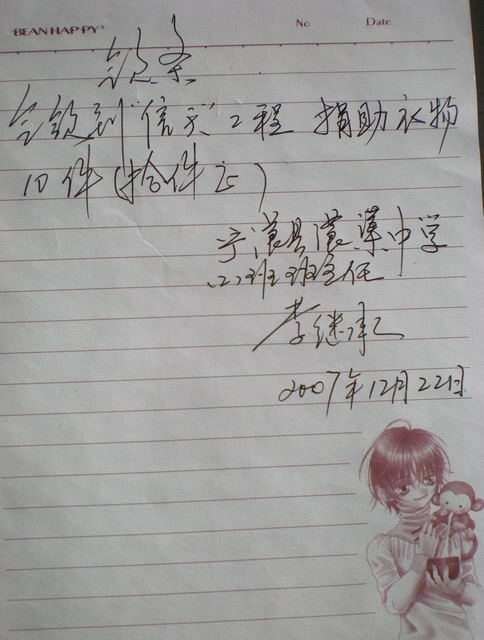 BEAN HAPPY®
No Date
领条
今领到“信天”工程 捐助衣物
10件(拾件正)
宁蒗县蒗蕖中学
班班主任
李继承
2007年12月22日